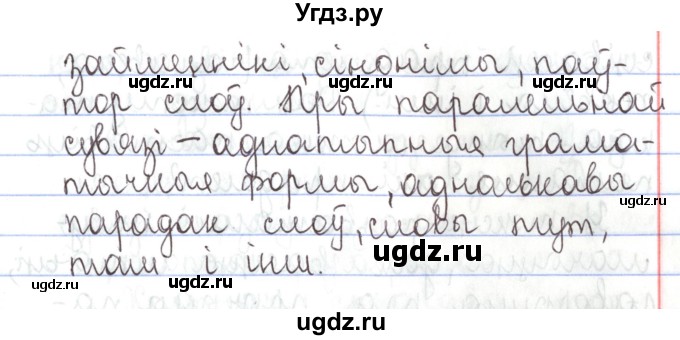 Угдз.ру
займеннікі, сінонімы, паў-
тор слоў. Пры паралельнай
сувязі – аднатыпныя грама-
тычныя формы, аднолькавы
парадак слоў, словы тут,
там і інш.
ugdz.ru
ugdz.ru
ugdz.ru
ugdz.ru
ugdz.ru
ugdz.ru
ugdz.ru
ugdz.ru